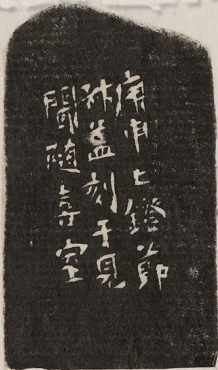 庚申上鐙節
叔蓋刻于見
聞隨喜室